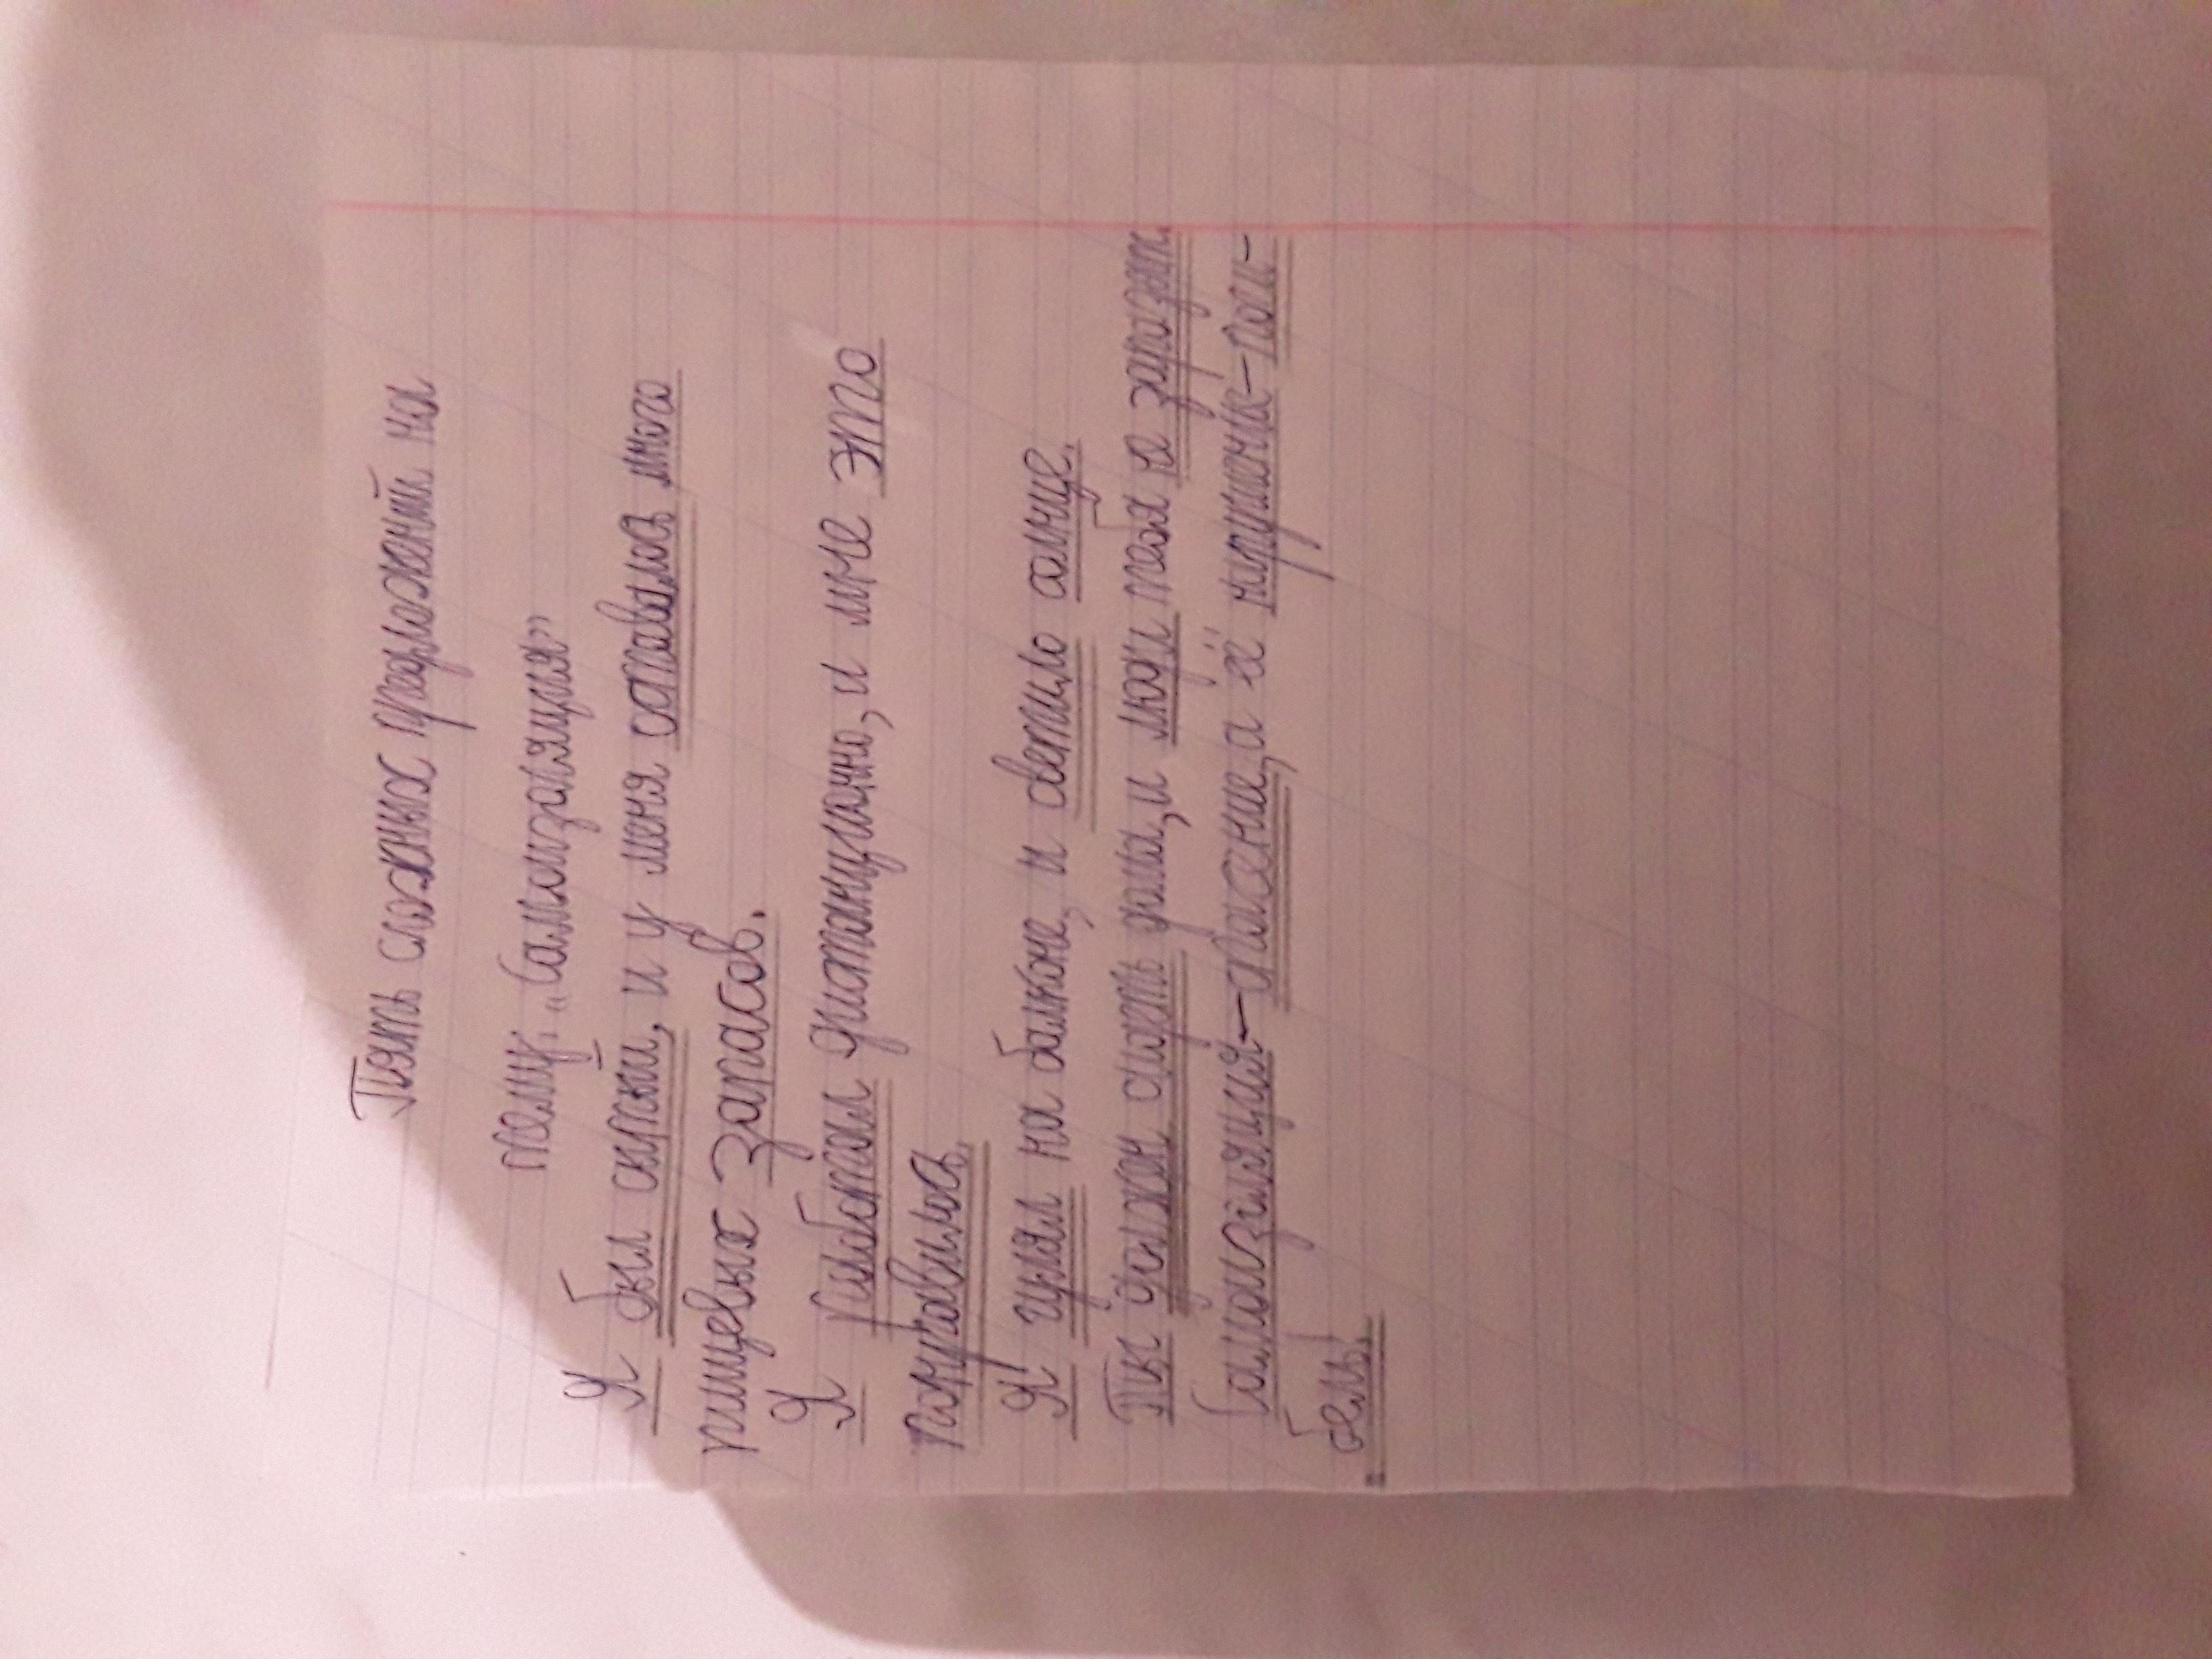 Пять сложных предложений на
тему: „Самоизоляция”
Я был сытый, и у меня оставалось много
пищевых запасов.
Я работал дистанционно, и мне это
понравилось.
Я гулял на балконе, и светило солнце.
Ты должен сидеть дома, и люди тебя не заразят.
Самоизоляция – спасение, а её нарушение – поги-
бель.